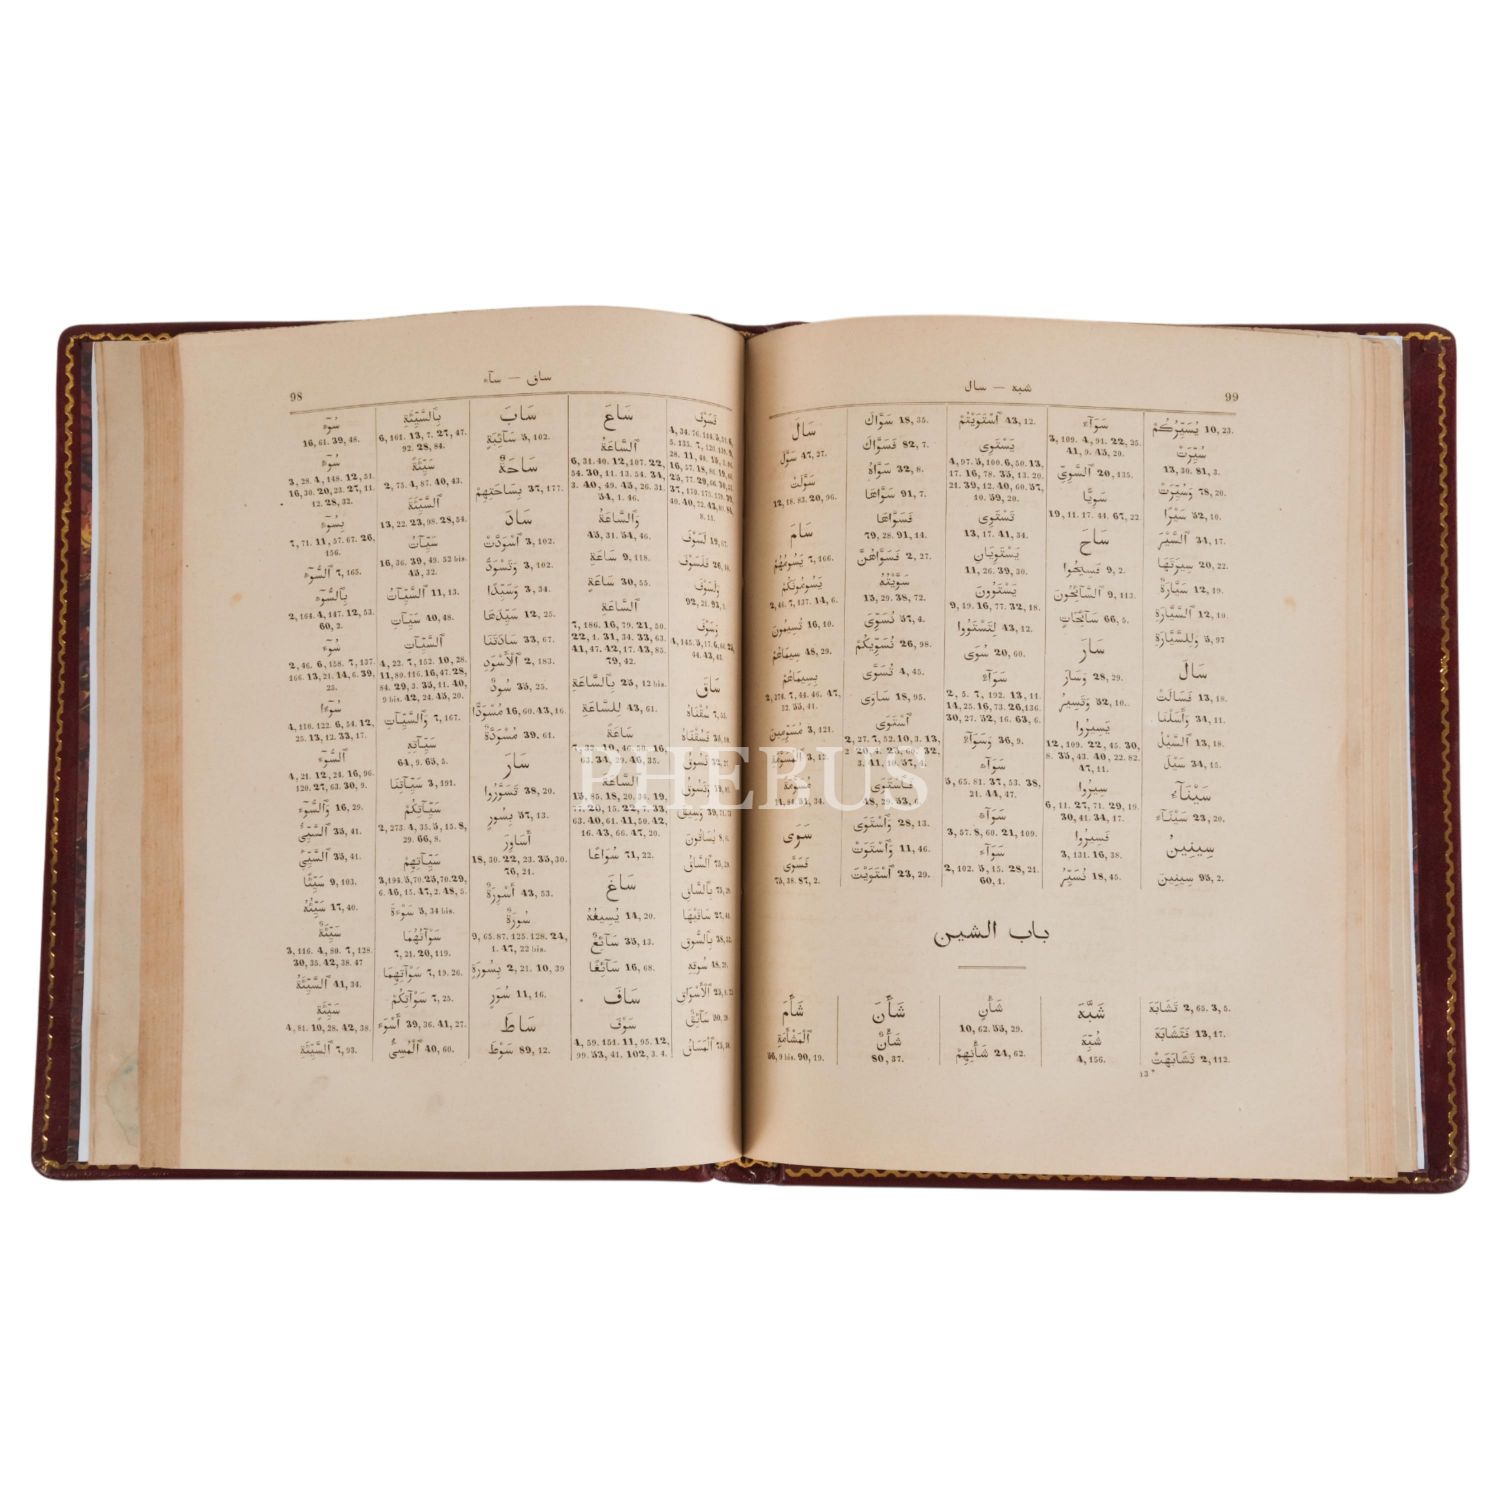 98
ساق — سآء
سُوٓء
16, 61. 39, 48.
سُوٓء
3, 28. 4, 148. 12, 51.
16, 30. 20, 23. 27, 11.
12. 28, 32.
بِسُوٓء
7, 71. 11, 57. 67. 26,
156.
7, 165. ٱلسُّوٓء
بِٱلسُّوٓء
2, 164. 4, 147. 12, 53.
60, 2.
سُوٓء
2, 46. 6, 158. 7, 137.
166. 13, 21. 14, 6. 39,
25.
سُوٓءًا
4, 110. 122. 6, 54. 12,
25. 13, 12. 33, 17.
ٱلسُّوٓء
4, 21. 12, 24. 16, 96.
120. 27, 63. 30, 9.
16, 29. وَٱلسُّوٓء
35, 41. ٱلسَّيِّئُ
35, 41. ٱلسَّيِّئِ
9, 103. سَيِّئًا
17, 40. سَيِّئُهُ
سَيِّئَةٌ
3, 116. 4, 80. 7, 128.
30, 35. 42, 38. 47
41, 34. ٱلسَّيِّئَةُ
سَيِّئَةٍ
4, 81. 10, 28. 42, 38.
7, 93. ٱلسَّيِّئَةِ
بِٱلسَّيِّئَةِ
6, 161. 13, 7. 27, 47.
92. 28, 84.
سَيِّئَةً
2, 75. 4, 87. 40, 43.
ٱلسَّيِّئَةَ
13, 22. 23, 98. 28, 54.
سَيِّآتُ
16, 36. 39, 49. 52 bis.
45, 32.
11, 13. ٱلسَّيِّآتُ
40, 48. سَيِّآتِ
ٱلسَّيِّآتِ
4, 22. 7, 152. 10, 28.
11, 80. 116. 16, 47. 28,
84. 29, 3. 35, 11. 40,
9 bis. 42, 24. 45, 20.
7, 167. وَٱلسَّيِّآتِ
سَيِّآتِهِ
64, 9. 65, 5.
3, 191. سَيِّآتِنَا
سَيِّآتِكُمْ
2, 273. 4, 35. 5, 15. 8,
29. 66, 8.
سَيِّآتِهِمْ
3, 194. 5, 70. 25, 70. 29,
6. 46, 15. 47, 2. 48, 5.
5, 34 bis. سَوْءَةَ
سَوْآتُهُمَا
7, 21. 20, 119.
7, 19. 26. سَوْآتِهِمَا
7, 25. سَوْآتِكُمْ
39, 36. 41, 27. أَسْوَءَ
40, 60. ٱلْمُسِيُّ
سَابَ
5, 102. سَآئِبَةٍ
سَاحَةٌ
37, 177. بِسَاحَتِهِمْ
سَادَ
3, 102. ٱسْوَدَّتْ
3, 102. وَتَسْوَدُّ
3, 34. وَسَيِّدًا
12, 25. سَيِّدَهَا
33, 67. سَادَتَنَا
2, 183. ٱلْأَسْوَدِ
35, 25. سُودٌ
16, 60. 43, 16. مُسْوَدًّا
39, 61. مُسْوَدَّةٌ
سَارَ
38, 20. تَسَوَّرُوا
57, 13. بِسُورٍ
أَسَاوِرَ
18, 30. 22, 23. 35, 30.
76, 21.
43, 53. أَسْوِرَةٌ
سُورَةٌ
9, 65. 87. 125. 128. 24,
1. 47, 22 bis.
2, 21. 10, 39 بِسُورَةٍ
11, 16. سُوَرٍ
سَاطَ
89, 12. سَوْطَ
سَاعَ
ٱلسَّاعَةُ
6, 31. 40. 12, 107. 22,
54. 30, 11. 13. 54. 34,
3. 40, 49. 45, 26. 31.
54, 1. 46.
وَٱلسَّاعَةُ
45, 31. 54, 46.
9, 118. سَاعَةِ
30, 55. سَاعَةٍ
ٱلسَّاعَةِ
7, 186. 16, 79. 21, 50.
22, 1. 31, 34. 33, 63.
41, 47. 42, 17. 43, 85.
79, 42.
25, 12 bis. بِٱلسَّاعَةِ
43, 61. لِلسَّاعَةِ
سَاعَةً
7, 32. 10, 46. 50. 16,
63. 34, 29. 46, 35.
ٱلسَّاعَةَ
15, 85. 18, 20. 34. 19,
77. 20, 15. 22, 7. 33,
63. 40, 61. 41, 50. 42,
16. 43, 66. 47, 20.
71, 22. سُوَاعًا
سَاغَ
14, 20. يُسِيغُهُ
35, 13. سَآئِغٌ
16, 68. سَآئِغًا
سَافَ
سَوْفَ
4, 59. 151. 11, 95. 12,
99. 53, 41. 102, 3. 4.
فَسَوْفَ
19, 67. لَسَوْفَ
فَلَسَوْفَ
وَلَسَوْفَ
وَسَوْفَ
سَاقَ
سُقْنَاهُ
فَسُقْنَاهُ
نَسُوقُ
وَنَسُوقُ
وَسِيقَ
يُسَاقُونَ
ٱلسَّاقُ
بِٱلسَّاقِ
سَاقَيْهَا
بِٱلسُّوقِ
سُوقِهِ
ٱلْأَسْوَاقِ
سَآئِقٌ
ٱلْمَسَاقُ
شبه — سال
99
سَالَ
47, 27. سَوَّلَ
سَوَّلَتْ
12, 18. 83. 20, 96.
سَامَ
7, 166. يَسُومُهُمْ
يَسُومُونَكُمْ
2, 46. 7, 137. 14, 6.
16, 10. تُسِيمُونَ
48, 29. سِيمَاهُمْ
بِسِيمَاهُمْ
2, 274. 7, 44. 46. 47,
32. 55, 41.
3, 121. مُسَوِّمِينَ
3, 12. ٱلْمُسَوَّمَةِ
مُسَوَّمَةً
11, 84. 51, 34.
سَوَى
فَسَوَّى
75, 38. 87, 2.
18, 35. سَوَّاكَ
82, 7. فَسَوَّاكَ
32, 8. سَوَّاهُ
91, 7. سَوَّاهَا
فَسَوَّاهَا
79, 28. 91, 14.
2, 27. فَسَوَّاهُنَّ
سَوَّيْتُهُ
15, 29. 38, 72.
57, 4. نُسَوِّيَ
26, 98. نُسَوِّيكُمْ
4, 45. تُسَوَّى
18, 95. سَاوَى
ٱسْتَوَى
2, 27. 7, 52. 10, 3. 13,
2. 20, 4. 25, 60. 32,
3. 41, 10. 57, 4.
فَٱسْتَوَى
48, 29. 53, 6.
28, 13. وَٱسْتَوَى
11, 46. وَٱسْتَوَتْ
23, 29. ٱسْتَوَيْتَ
43, 12. ٱسْتَوَيْتُمْ
يَسْتَوِى
4, 97. 5, 100. 6, 50. 13,
17. 16, 78. 35, 13. 20.
21. 39, 12. 40, 60. 57,
10. 59, 20.
تَسْتَوِى
13, 17. 41, 34.
يَسْتَوِيَانِ
11, 26. 39, 30.
يَسْتَوُونَ
9, 19. 16, 77. 32, 18.
43, 12. لِتَسْتَوُوا
20, 60. سُوًى
سَوَآءٌ
2, 5. 7, 192. 13, 11.
14, 25. 16, 73. 26, 136.
30, 27. 52, 16. 63, 6.
36, 9. وَسَوَآءٌ
سَوَآءِ
5, 65. 81. 37, 53. 38,
21. 44, 47.
سَوَآءٍ
3, 57. 8, 60. 21, 109.
سَوَآءَ
2, 102. 5, 15. 28, 21.
60, 1.
سَوَآءً
3, 109. 4, 91. 22, 25.
41, 9. 45, 20.
20, 135. ٱلسَّوِيِّ
سَوِيًّا
19, 11. 17. 44. 67, 22
سَاحَ
9, 2. فَسِيحُوا
9, 113. ٱلسَّآئِحُونَ
66, 5. سَآئِحَاتٍ
سَارَ
28, 29. وَسَارَ
52, 10. وَتَسِيرُ
يَسِيرُوا
12, 109. 22, 45. 30,
8. 35, 43. 40, 22. 82.
47, 11.
سِيرُوا
6, 11. 27, 71. 29, 19.
30, 41. 34, 17.
فَسِيرُوا
3, 131. 16, 38.
18, 45. نُسَيِّرُ
10, 23. يُسَيِّرُكُمْ
سُيِّرَتْ
13, 30. 81, 3.
78, 20. وَسُيِّرَتِ
52, 10. سَيْرًا
34, 17. ٱلسَّيْرَ
20, 22. سِيرَتَهَا
12, 19. سَيَّارَةٌ
12, 10. ٱلسَّيَّارَةِ
5, 97. وَلِلسَّيَّارَةِ
سَالَ
13, 18. فَسَالَتْ
34, 11. وَأَسَلْنَا
13, 18. ٱلسَّيْلُ
34, 15. سَيْلَ
سَيْنَآءَ
23, 20. سَيْنَآءَ
سِينِينُ
95, 2. سِينِينَ
باب الشين
شَأَمَ
ٱلْمَشْأَمَةِ
56, 9 bis. 90, 19.
شَأَنَ
شَأْنٌ
80, 37.
شَأْنٍ
10, 62. 55, 29.
24, 62. شَأْنِهِمْ
شَبَّهَ
شُبِّهَ
4, 156.
2, 65. 3, 5. تَشَابَهَ
13, 17. فَتَشَابَهَ
2, 112. تَشَابَهَتْ
13*
PHEBUS